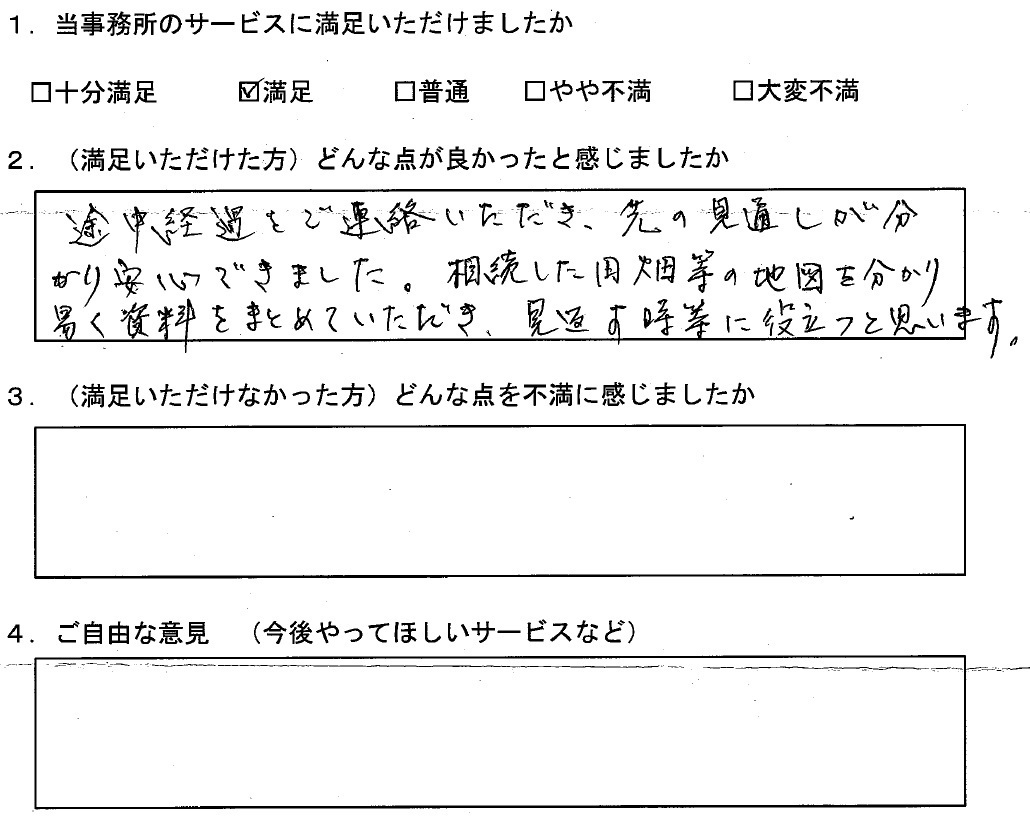 1．当事務所のサービスに満足いただけましたか
□十分満足 ☑満足 □普通 □やや不満 □大変不満
2．（満足いただけた方）どんな点が良かったと感じましたか
途中経過をご連絡いただき、先の見通しが分
かり安心できました。相続した田畑等の地図を分かり
易く資料をまとめていただき、見返す時等に役立つと思います。
3．（満足いただけなかった方）どんな点を不満に感じましたか
4．ご自由な意見　（今後やってほしいサービスなど）